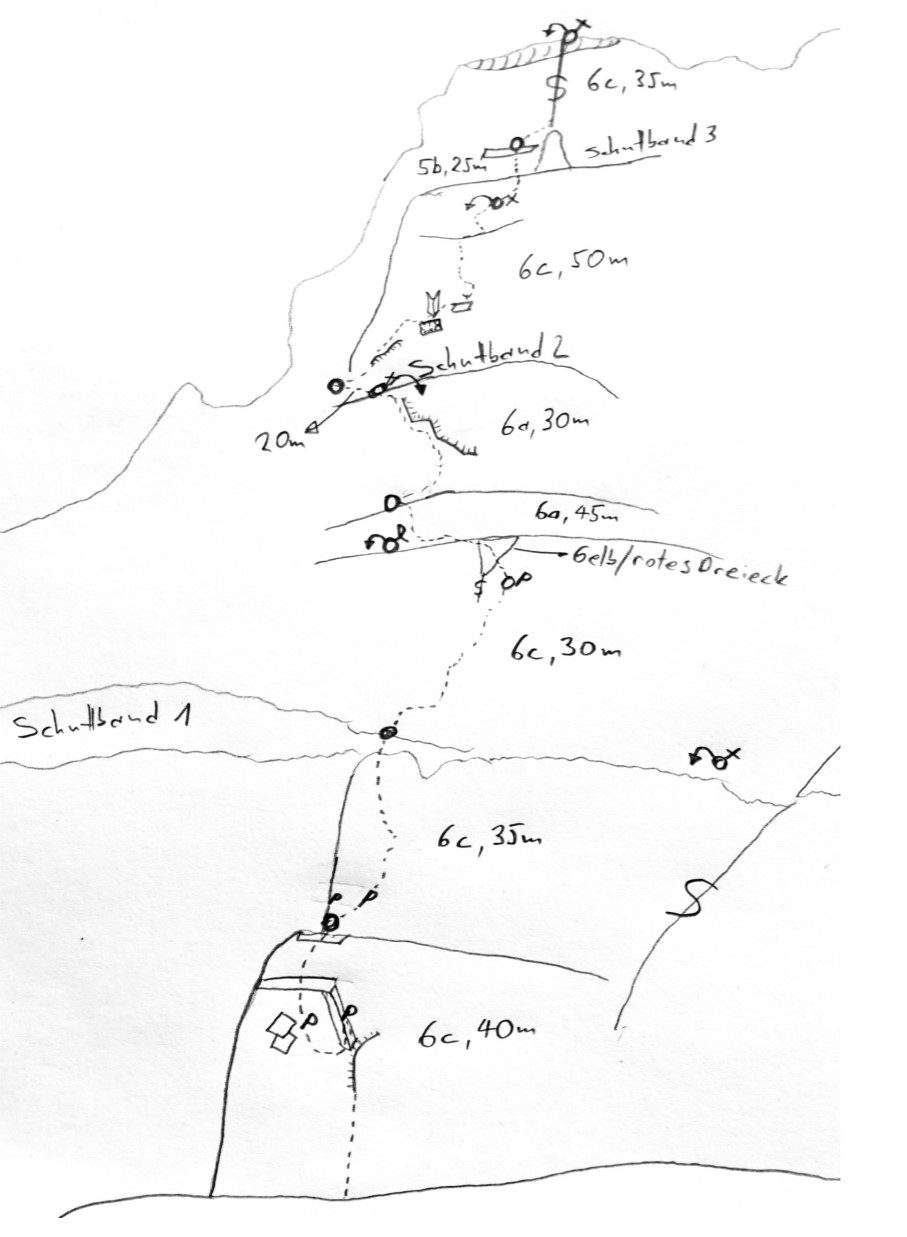 6c, 35m
Schuttband 3
5b, 25m
6c, 50m
Schuttband 2
20m
6a, 30m
6a, 45m
Gelb/rotes Dreieck
6c, 30m
Schuttband 1
6c, 35m
6c, 40m